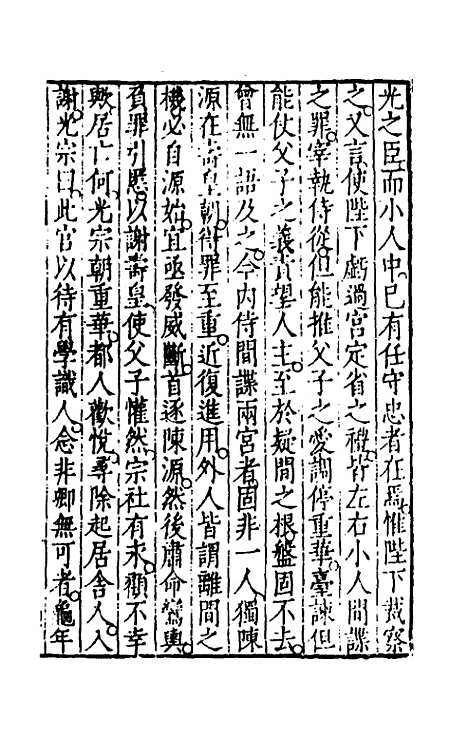 光之臣而小人中已有任守忠者在焉惟陛下裁察
之又言使陛下虧過宮定省之禮皆左右小人間諜
之罪宰執侍從但能推父子之愛調停重華臺諫但
能仗父子之義責望人主至於疑間之根盤固不去
曾無一語及之今內侍間諜兩宮者固非一人獨陳
源在壽皇朝得罪至重近復進用外人皆謂離間之
機必自源始宜亟發威斷首逐陳源然後肅命鸞輿
負罪引慝以謝壽皇使父子懽然宗社有永顧不幸
歟居亡何光宗朝重華都人歡悅尋除起居舍人入
謝光宗曰此官以待有學識人念非卿無可者龜年